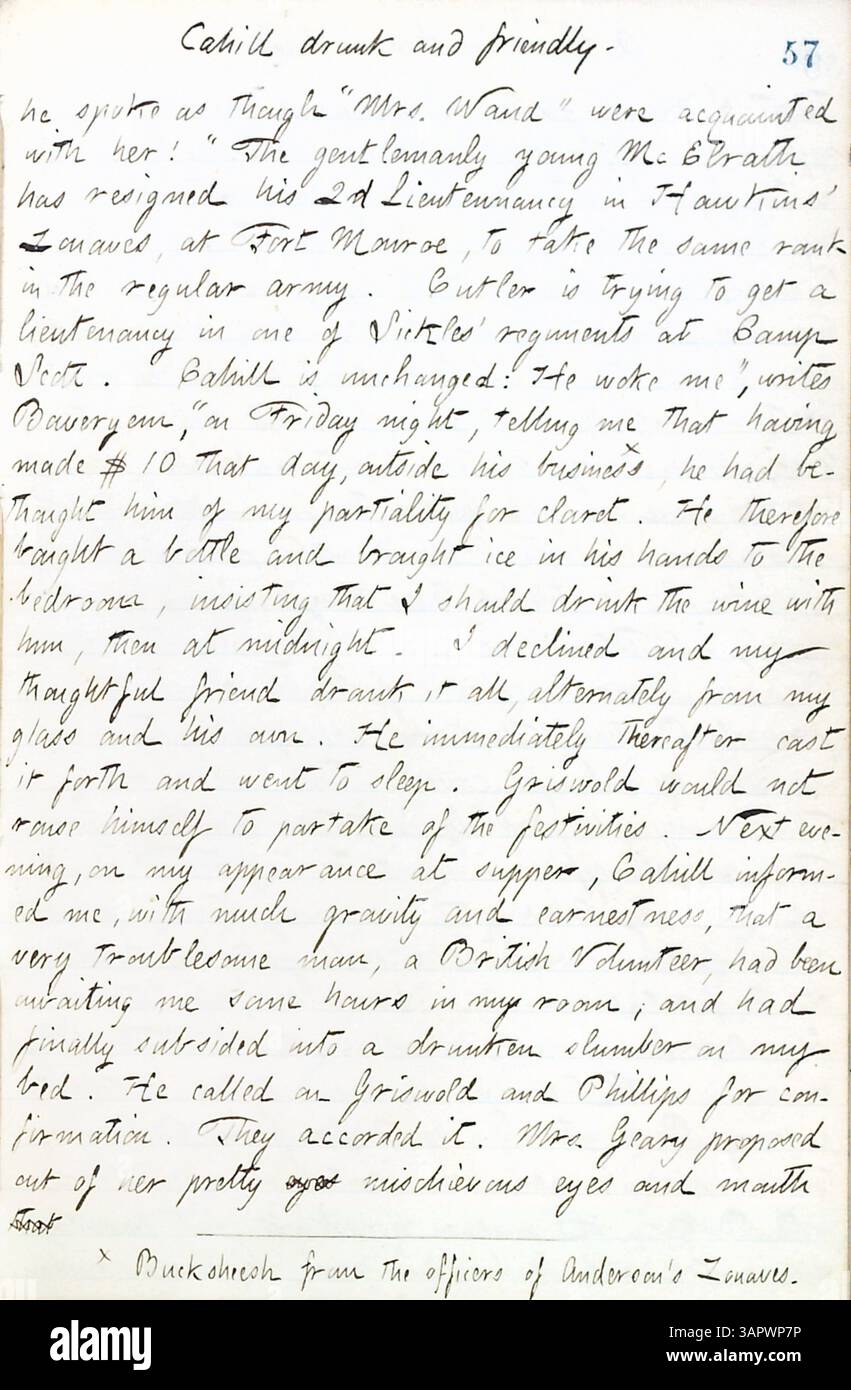 Cahill drunk and friendly.
57
he spoke as though "Mrs. Wand" were acquainted
with her!" The gentlemanly young McElrath
has resigned his 2d Lieutennancy in Hawkins'
Zouaves, at Fort Monroe, to take the same rank
in the regular army. Cutler is trying to get a
lieutenancy in one of Sickles' regiments at Camp
Scott. Cahill is unchanged: He woke me", writes
"on Friday night, telling me that having
made $10 that day, outside his business x, he had be-
thought him of my partiality for claret. He therefore
bought a bottle and brought ice in his hands to the
bedroom, insisting that I should drink the wine with
him, then at midnight. I declined and my
thoughtful friend drank it all, alternately from my
glass and his own. He immediately thereafter cast
it forth and went to sleep. Griswold would not
rouse himself to partake of the festivities. Next eve-
ning, on my appearance at supper, Cahill inform-
ed me, with much gravity and earnestness, that a
very troublesome man, a British Volunteer, had been
awaiting me some hours in my room; and had
finally subsided into a drunken slumber on my
bed. He called on Griswold and Phillips for con-
firmation. They accorded it. Mrs. Geary proposed
out of her pretty eyes mischievous eyes and mouth
that
x Bucksheesh from the officers of Anderson's Zouaves.
alamy
Image ID: 3APWP7P
www.alamy.com